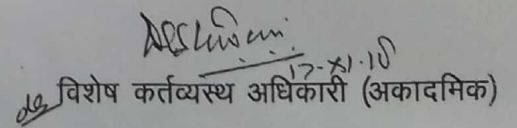 17-XI-18
विशेष कर्तव्यस्थ अधिकारी (अकादमिक)